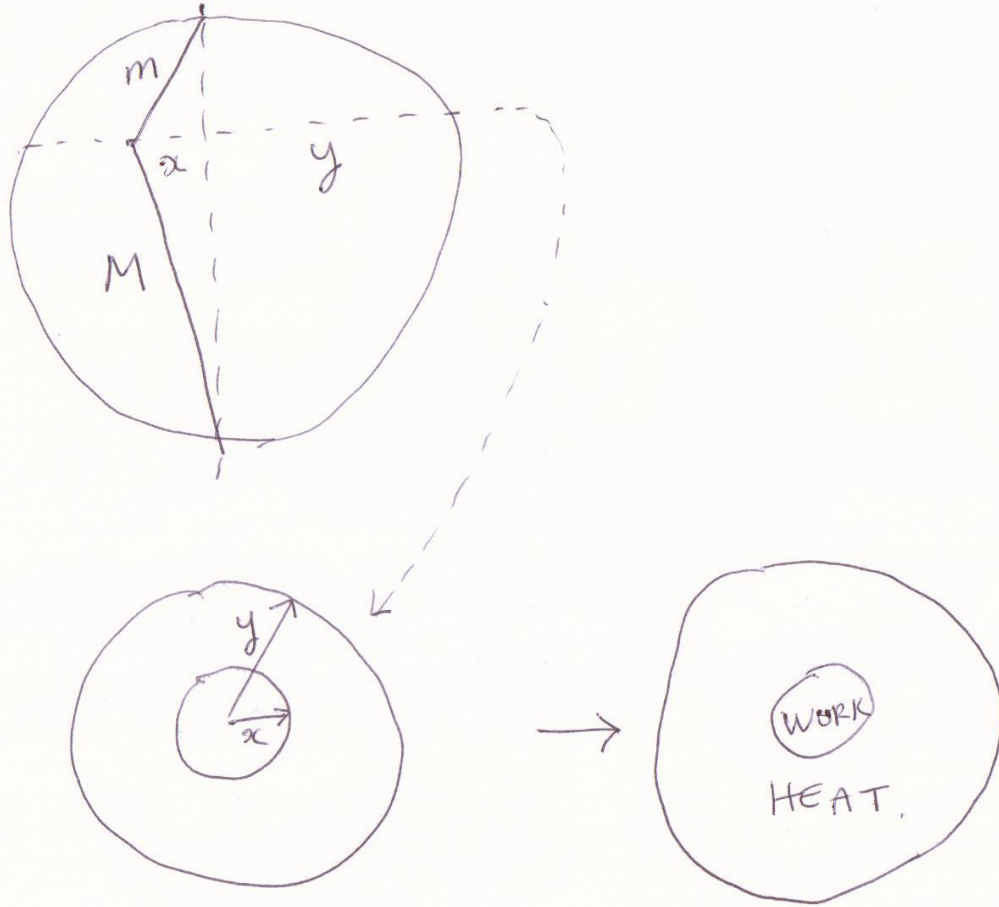 m
x
y
M
y
x
WORK
HEAT.